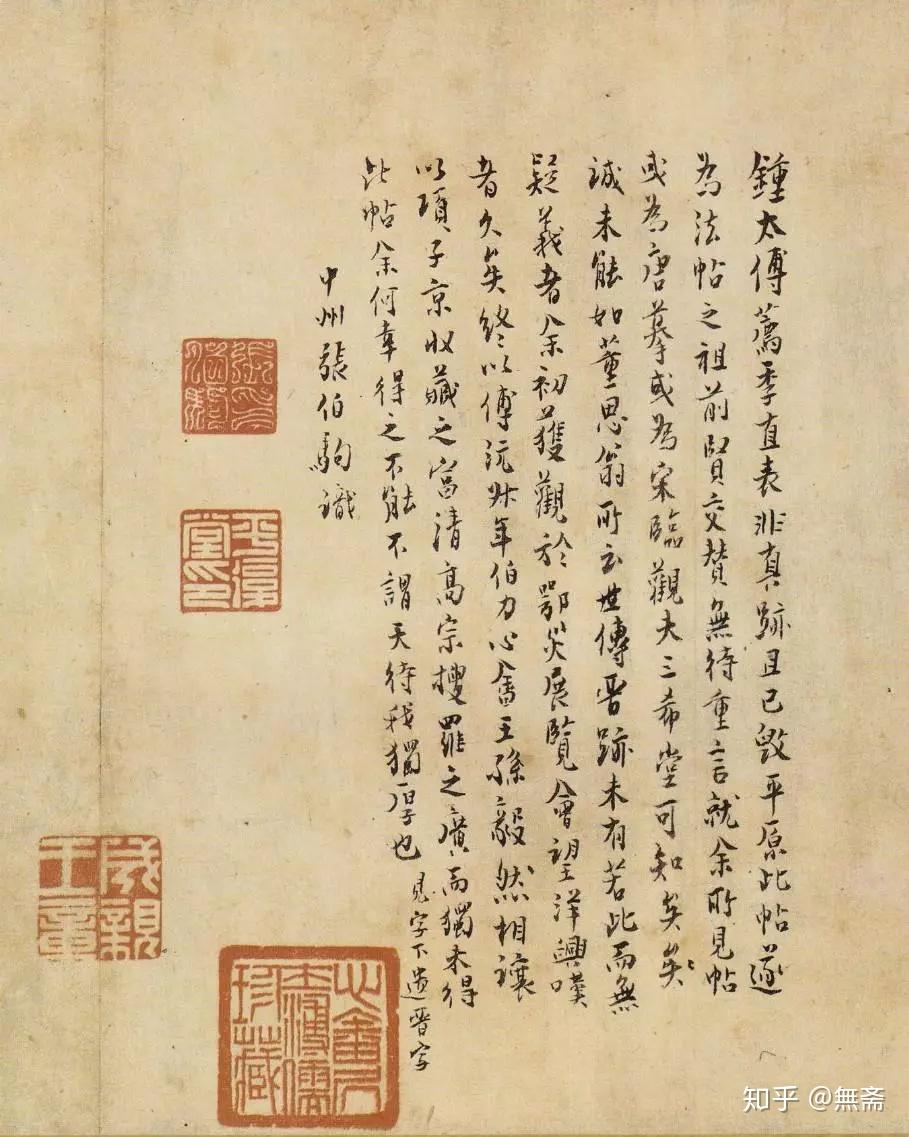 鍾太傅薦季直表非真跡且已毀平原此帖遂
為法帖之祖前賢交贊無待重言就余所見帖
或為唐摹或為宋臨觀夫三希堂可知矣矣
誠未能如董思翁所云世傳晉跡未有若此而無
疑義者余初獲觀於鄂災展覽會望洋興嘆
者久矣終以傅沅叔年伯力心畬王孫毅然相讓
以項子京收藏之富清高宗搜羅之廣而獨未得
此帖余何幸得之不能不謂天待我獨厚也 見字下遺晉字
中州張伯駒識
張印伯駒
平復堂印
成親王章
知乎 @無斋